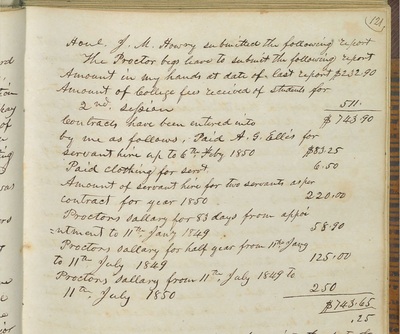 121
Honl. J. M. Howry submitted the following report
The Proctor begs leave to submit the following report
Amount in my hands at date of last report $232.90
Amount of College fees received of students for
2nd. session 511.
Contracts have been entered into $743.90
by me as follows, Paid A. G. Ellis for
servant hire up to 6th Feby 1850 $83.25
Paid clothing for servt. 6.50
Amount of servant hire for two servants as per
contract for year 1850 220.00
Proctors sallary for 83 days from appoi
=ntment to 11th Jany 1849 58.90
Proctors sallary for half year from 11th Jany
to 11th July 1849 125.00
Proctors sallary from 11th July 1849 to
11th July 1850 250
$743.65
.25